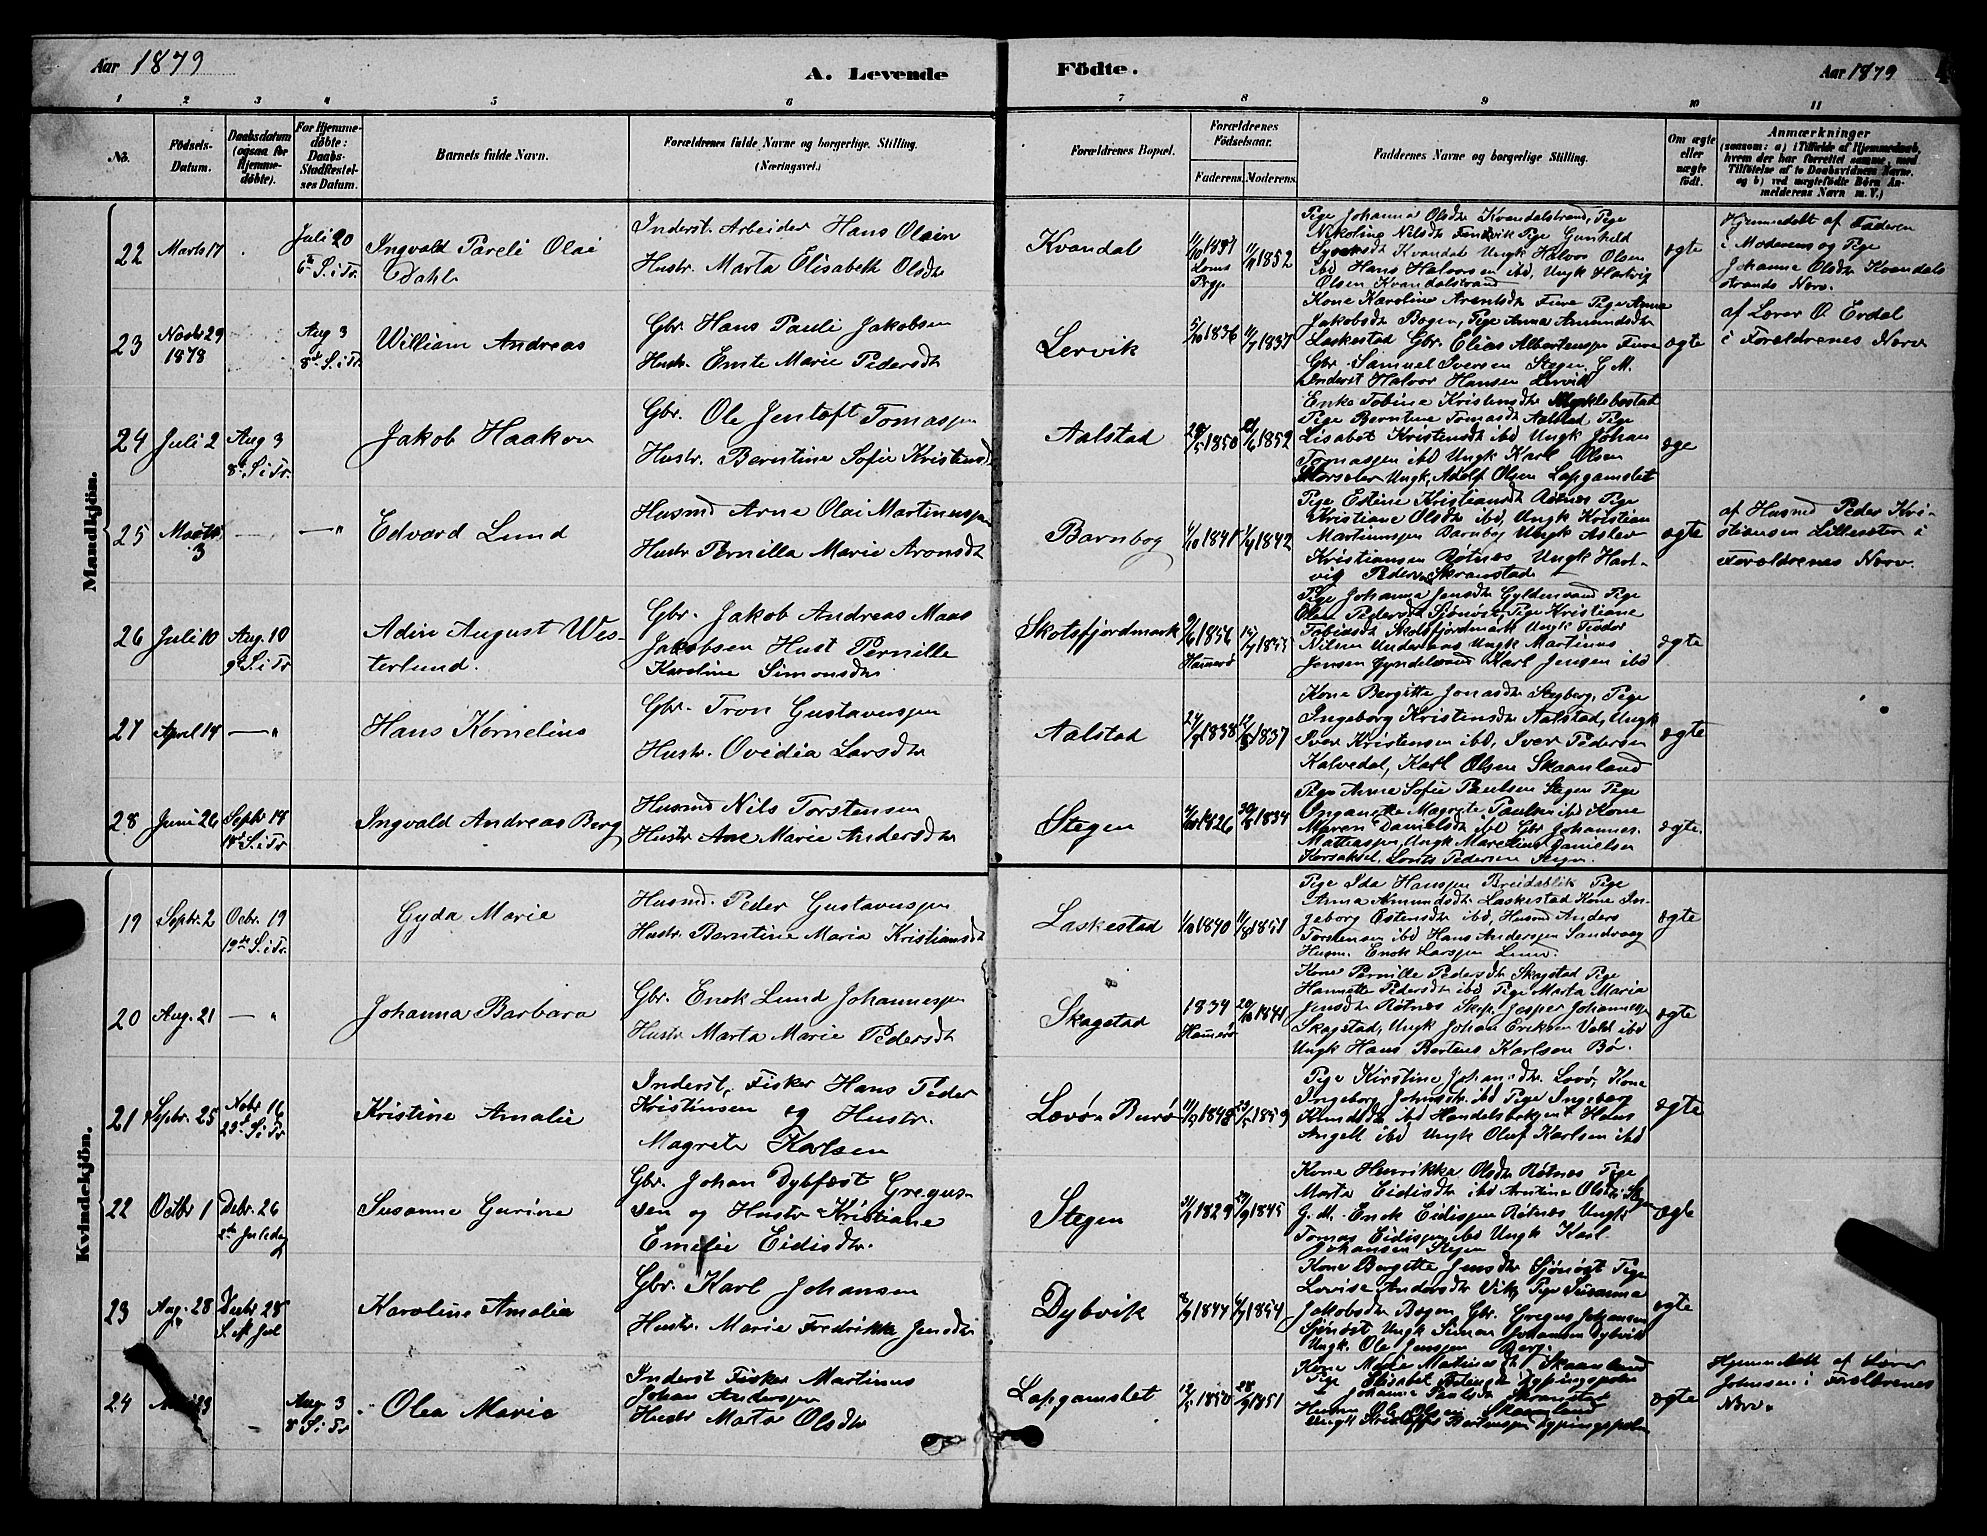 Aar 1879
A. Levende
Födte.
Aar 1879
1 2 3 4 5 6 7 8 9 10 11
No.
Födsels-
Datum.
Daabsdatum
(ogsaa for
Hjemme-
döbte).
For Hjemme-
döbte:
Daabs-
Stadfæstel-
ses Datum.
Barnets fulde Navn.
Forældrenes fulde Navne og borgerlige Stilling.
(Næringsvei.)
Forældrenes Bopæl.
Forældrenes
Födselsaar.
Faderens. Moderens.
Faddernes Navne og borgerlige Stilling.
Om ægte
eller
uægte
födt.
Anmærkninger
(saasom: a) i Tilfælde af Hjemmedaab,
hvem der har forrettet samme, med
Tilföielse af to Daabsvidners Navne,
og b) ved uægtefödte Börn An-
melderens Navn m. V.)
Mandkjön.
22
Marts 17
Juli 20
6te S. i Tr.
Ingvald Pareli Olai
Dahl
Inderst. Arbeider Hans Olsin
Hustr. Marta Elisabeth Olsdtr
Kvandal
1852
Pige Johanna Olsdtr Kvandalstrand, Pige
Nikoline Nilsdtr Pige Gunhild
Kvandal Ungk Halvor Olsen
ibd, Hans Halvorsen ibd, Ungk Hartvig
Olsen Kvandalstrand
ægte
Hjemmedøbt af Faderen
i Moderens og Pige
Johanna Olsdtr Kvandal
strands Nærv.
23
Novbr 29
1878
Aug 3
8de S. i Tr.
William Andreas
Gbr. Hans Pauli Jakobsen
Hustr. Emte Marie Pedersdtr
Lervik
5/10 1836
1837
Kone Karoline Arentsdtr Fure Pige Anna
Jakobsdtr Bogen, Pige Anna Amundsdtr
Laskestad Gbr. Elias Albertensen Fure
Gbr. Samuel Iversen Stegen, G. M.
Inderst Halvor Hansen Lervik
ægte
af Lærer O. Evdal
i Forældrenes Nærv
24
Juli 2
Aug 3
8de S. i Tr.
Jakob Haakon
Gbr. Ole Jentoft Tomassen
Hustr. Berntine Sofie Kristensd
Aalstad
1850
1852
Enke Tobine Kristensdtr Myklebostad
Pige Berntine Tomasdtr Aalstad Pige
Lisabet Kristensdtr ibd Ungk Johan
Tomassen ibd Ungk Karl Olsen
Ungk. Adolf Olsen Lapgamslet
ægte
25
Marts
3
— "
Edvard Lund
Husmd Arne Olai Martinussen
Hustr Pernilla Marie Aronsdtr
Barnbog
1842
Pige Estine Kristiansdtr Røtnes Pige
Kristiane Olsdtr ibd, Ungk Kristian
Martinussen Barnbog Ungk Aslev
Kristiansen Røtnæs Ungk Hart-
vig Pedersen Skranstad
ægte
af Husmd Peder Kri-
stiansen i
Forældrenes Nærv.
26
Juli 10
Aug. 10
9de S. i Tr
Adin August Wes-
terlund.
Gbr. Jakob Andreas Maas
Jakobsen Hust Pernille
Karoline Simonsdtr
Skotsfjordmark
1856
Hamerø
Pige Johanna Jensdtr Gyldenvand Pige
Olea Pedersdtr Sjønøst, Pige Kristiane
Tobiasdtr Skotsfjordmark Ungk Teodor
Nilsen Underaas Ungk Martinus
Jensen Karl Jensen ibd
ægte
27
April 14
— "
Hans Kornelius
Gbr. Tron Gustavussen
Hustr. Ovidia Larsdtr
Aalstad
1838
1837
Kone Bergitte Jonasdtr Stegberg, Pige
Ingeborg Kristensdtr Aalstad, Ungk
Iver Kristensen ibd, Iver Pedersen
Kalvedal, Karl Olsen Skaanland
ægte
28
Juni 26
Septr 14
14de S. i Tr
Ingvald Andreas Berg
Husmd Nils Torstensen
Hustr Ane Marie Andersdtr
Stegen
1826
1834
Pige Anna Sofie Paulsen Stegen Pige
Magrete Paulsen ibd Kone
Maren Danielsdtr ibd Gbr Johannes
Mattiassen, Ungk Marelius Danielsen
Korsaksel, Lonts Pedersen Stegen.
ægte.
Kvindekjön.
19
Septr. 2
Octbr. 19
19de S. i Tr.
Gyda Marie
Husmd. Peder Gustavussen
Hustr. Berntine Maria Kristiansdtr
Laskestad
1840
1851
Pige Ida Hanssen Breidablik Pige
Anna Amundsdtr Laskestad Kone In-
geborg Østensdtr ibd, Husmd Anders
Torstensen ibd Hans Anderssen Sandvaag
Husm. Enok Larssen Lund.
ægte
20
Aug. 21
— "
Johanna Barbara
Gbr. Enok Lund Johannessen
Hustr Marta Marie Pedersdtr
Skagstad
1834
Hamerø
1841
Kone Pernille Pedersdtr Skagstad Pige
Hannette Pedersdtr ibd Pige Marta Maria
Jensdtr Røtnæs Skip. Jasper Johannessen
Skagstad, Ungk Johan Eriksen Vold ibd
Ungk Hans Bertens Karlsen Bø.
ægte
21
Septbr. 25
Novbr 16
23de S. i Tr
Kristine Amalie
Inderst, Fisker Hans Peder
Kristensen og Hustr.
Magrete Karlsen
Løvø Burø
1848
1859
Pige Kirstine Johansdtr Lovø, Kone
Ingeborg Johnsdtr. ibd Pige Ingeborg
Knudsdtr ibd Handelsbetjent Hans
Angell ibd Ungk Oluf Karlsen ibd
ægte
22
Octbr 1
Debr. 26
2den Juledag
Susanne Gurine
Gbr. Johan Dybfest Gregus-
sen og Hustr Kristiane
Emelie Eidisdtr.
Stegen
1829
1845
Kone Henrikke Olsdtr Røtnæs Pige
Marta Eidisdtr ibd Arntine Olsdtr Stegen
G. M. Enok Eidissen Røtnæs Ungk
Tomas Eidissen ibd Ungk Karl
Johansen Stegen
ægte
23
Aug. 28
Decbr. 28
S. eft Jul
Karoline Amalia
Gbr. Karl Johansen
Hustr. Marie Fredrikke Jensdtr
Dybvik
1844
1854
Kone Bergitte Jensdtr Sjønøst Pige
Lovise Andersdtr Vik, Pige Susanna
Jakobsdtr Bogen, Gbr. Gregus Johansen
Sjønøst Ungk Simon Johansen Dybvik
Ungk. Ole Jenssen Berg.
ægte
24
Aug. 3
8 S. i Tr
Olea Marie
Inderst Fisker Martinus
Johan Anderssen
Hustr Marta Olsdtr
Lapgamslet
1850
1851
Kone Marie Martinesdtr Skaanland
Pige Elisabet
Johanna Paulsdtr Skranstad
Husm Ole Olsen Skaanland
Ungk Kristoffer Berntssen
ægte
Hjemmedøbt af Lærer
Johnsen i Forældrenes
Nærv.